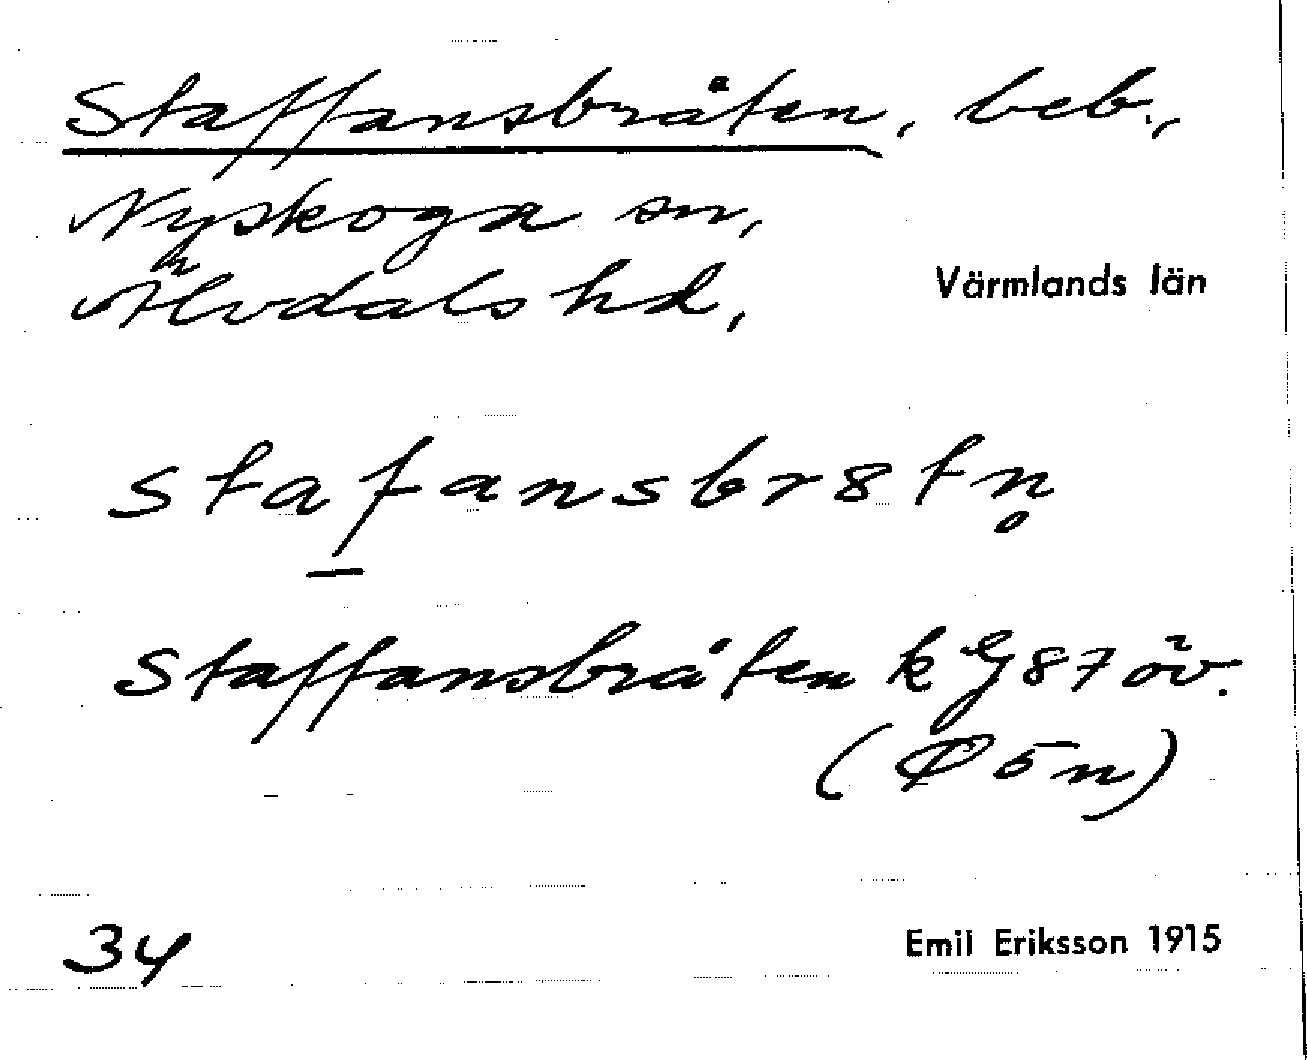 Staffansbråten, beb.,
Nyskoga sn,
Älvdals hd,
Värmlands län
stafansbr8tn̥
Staffansbråten k G 87 öv.
(Ø5n)
34
Emil Eriksson 1915